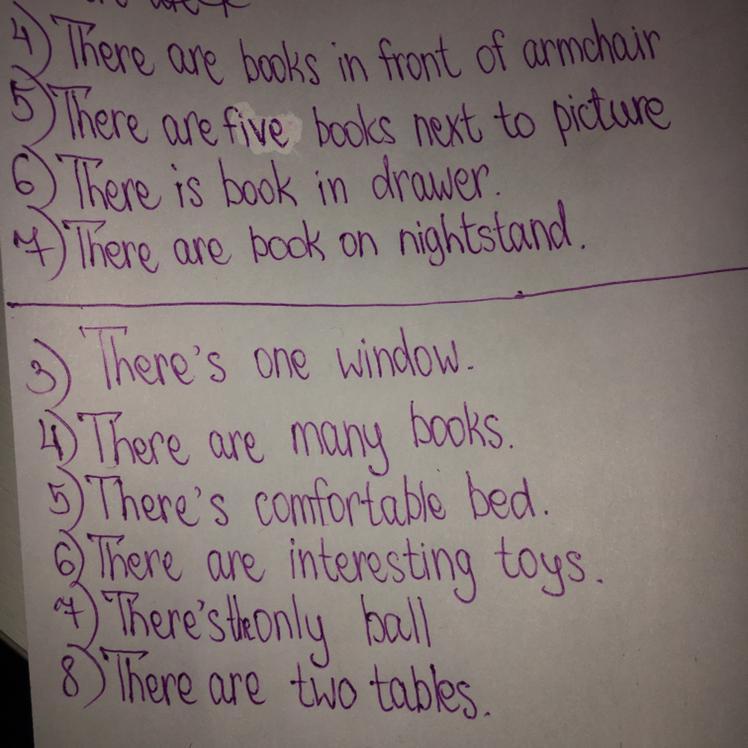 4) There are books in front of armchair
5) There are five books next to picture
6) There is book in drawer.
7) There are book on nightstand.
3) There's one window.
4) There are many books.
5) There's comfortable bed.
6) There are interesting toys.
7) There's the only ball
8) There are two tables.